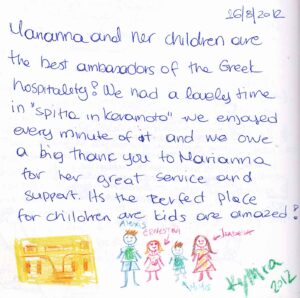 16/8/2012
Marianna and her children are
the best ambasadors of the Greek
hospitality! We had a lovely time
in "spitia in Koromoto" we enjoyed
every minute of it and we owe
a big thank you to Marianna
for her great service and
support. Its the perfect place
for children are kids are amazed!
Alexis
ERNESTINI
ISABELLA
2012